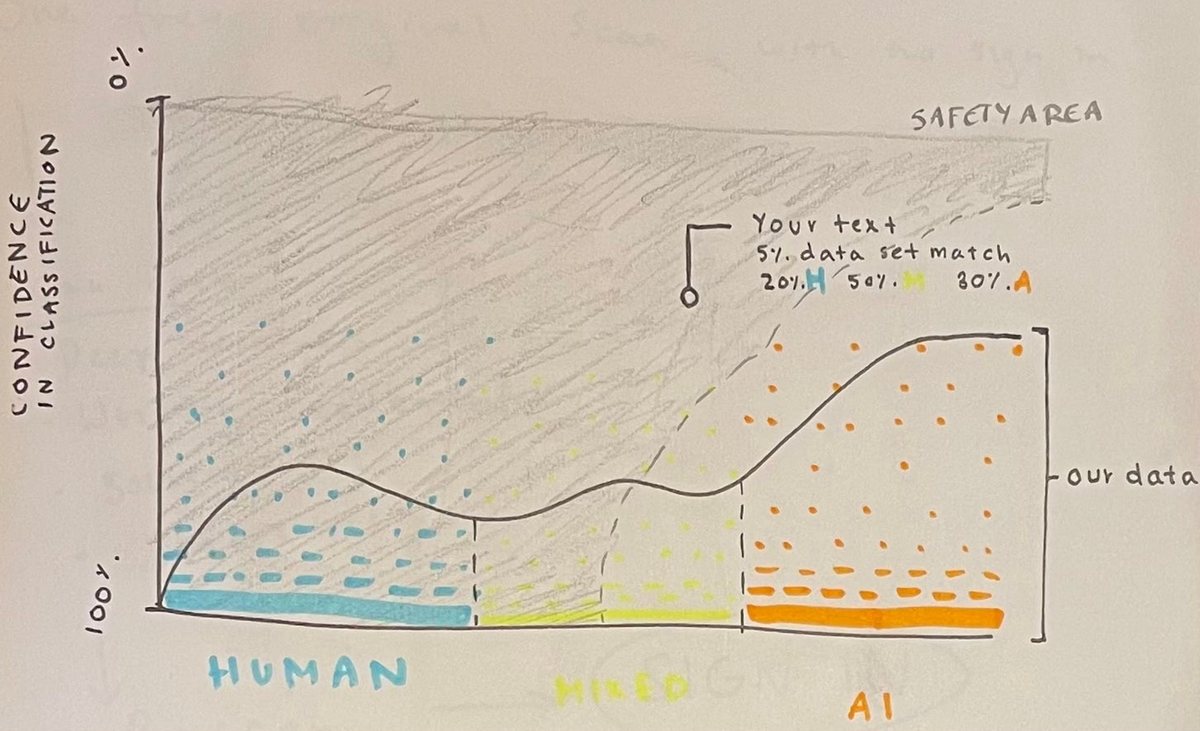 0%.
SAFETY AREA
CONFIDENCE
IN CLASSIFICATION
Your text
5%. data set match
20%.H 50%.M 30%.A
our data
100%.
HUMAN
MIXED
AI